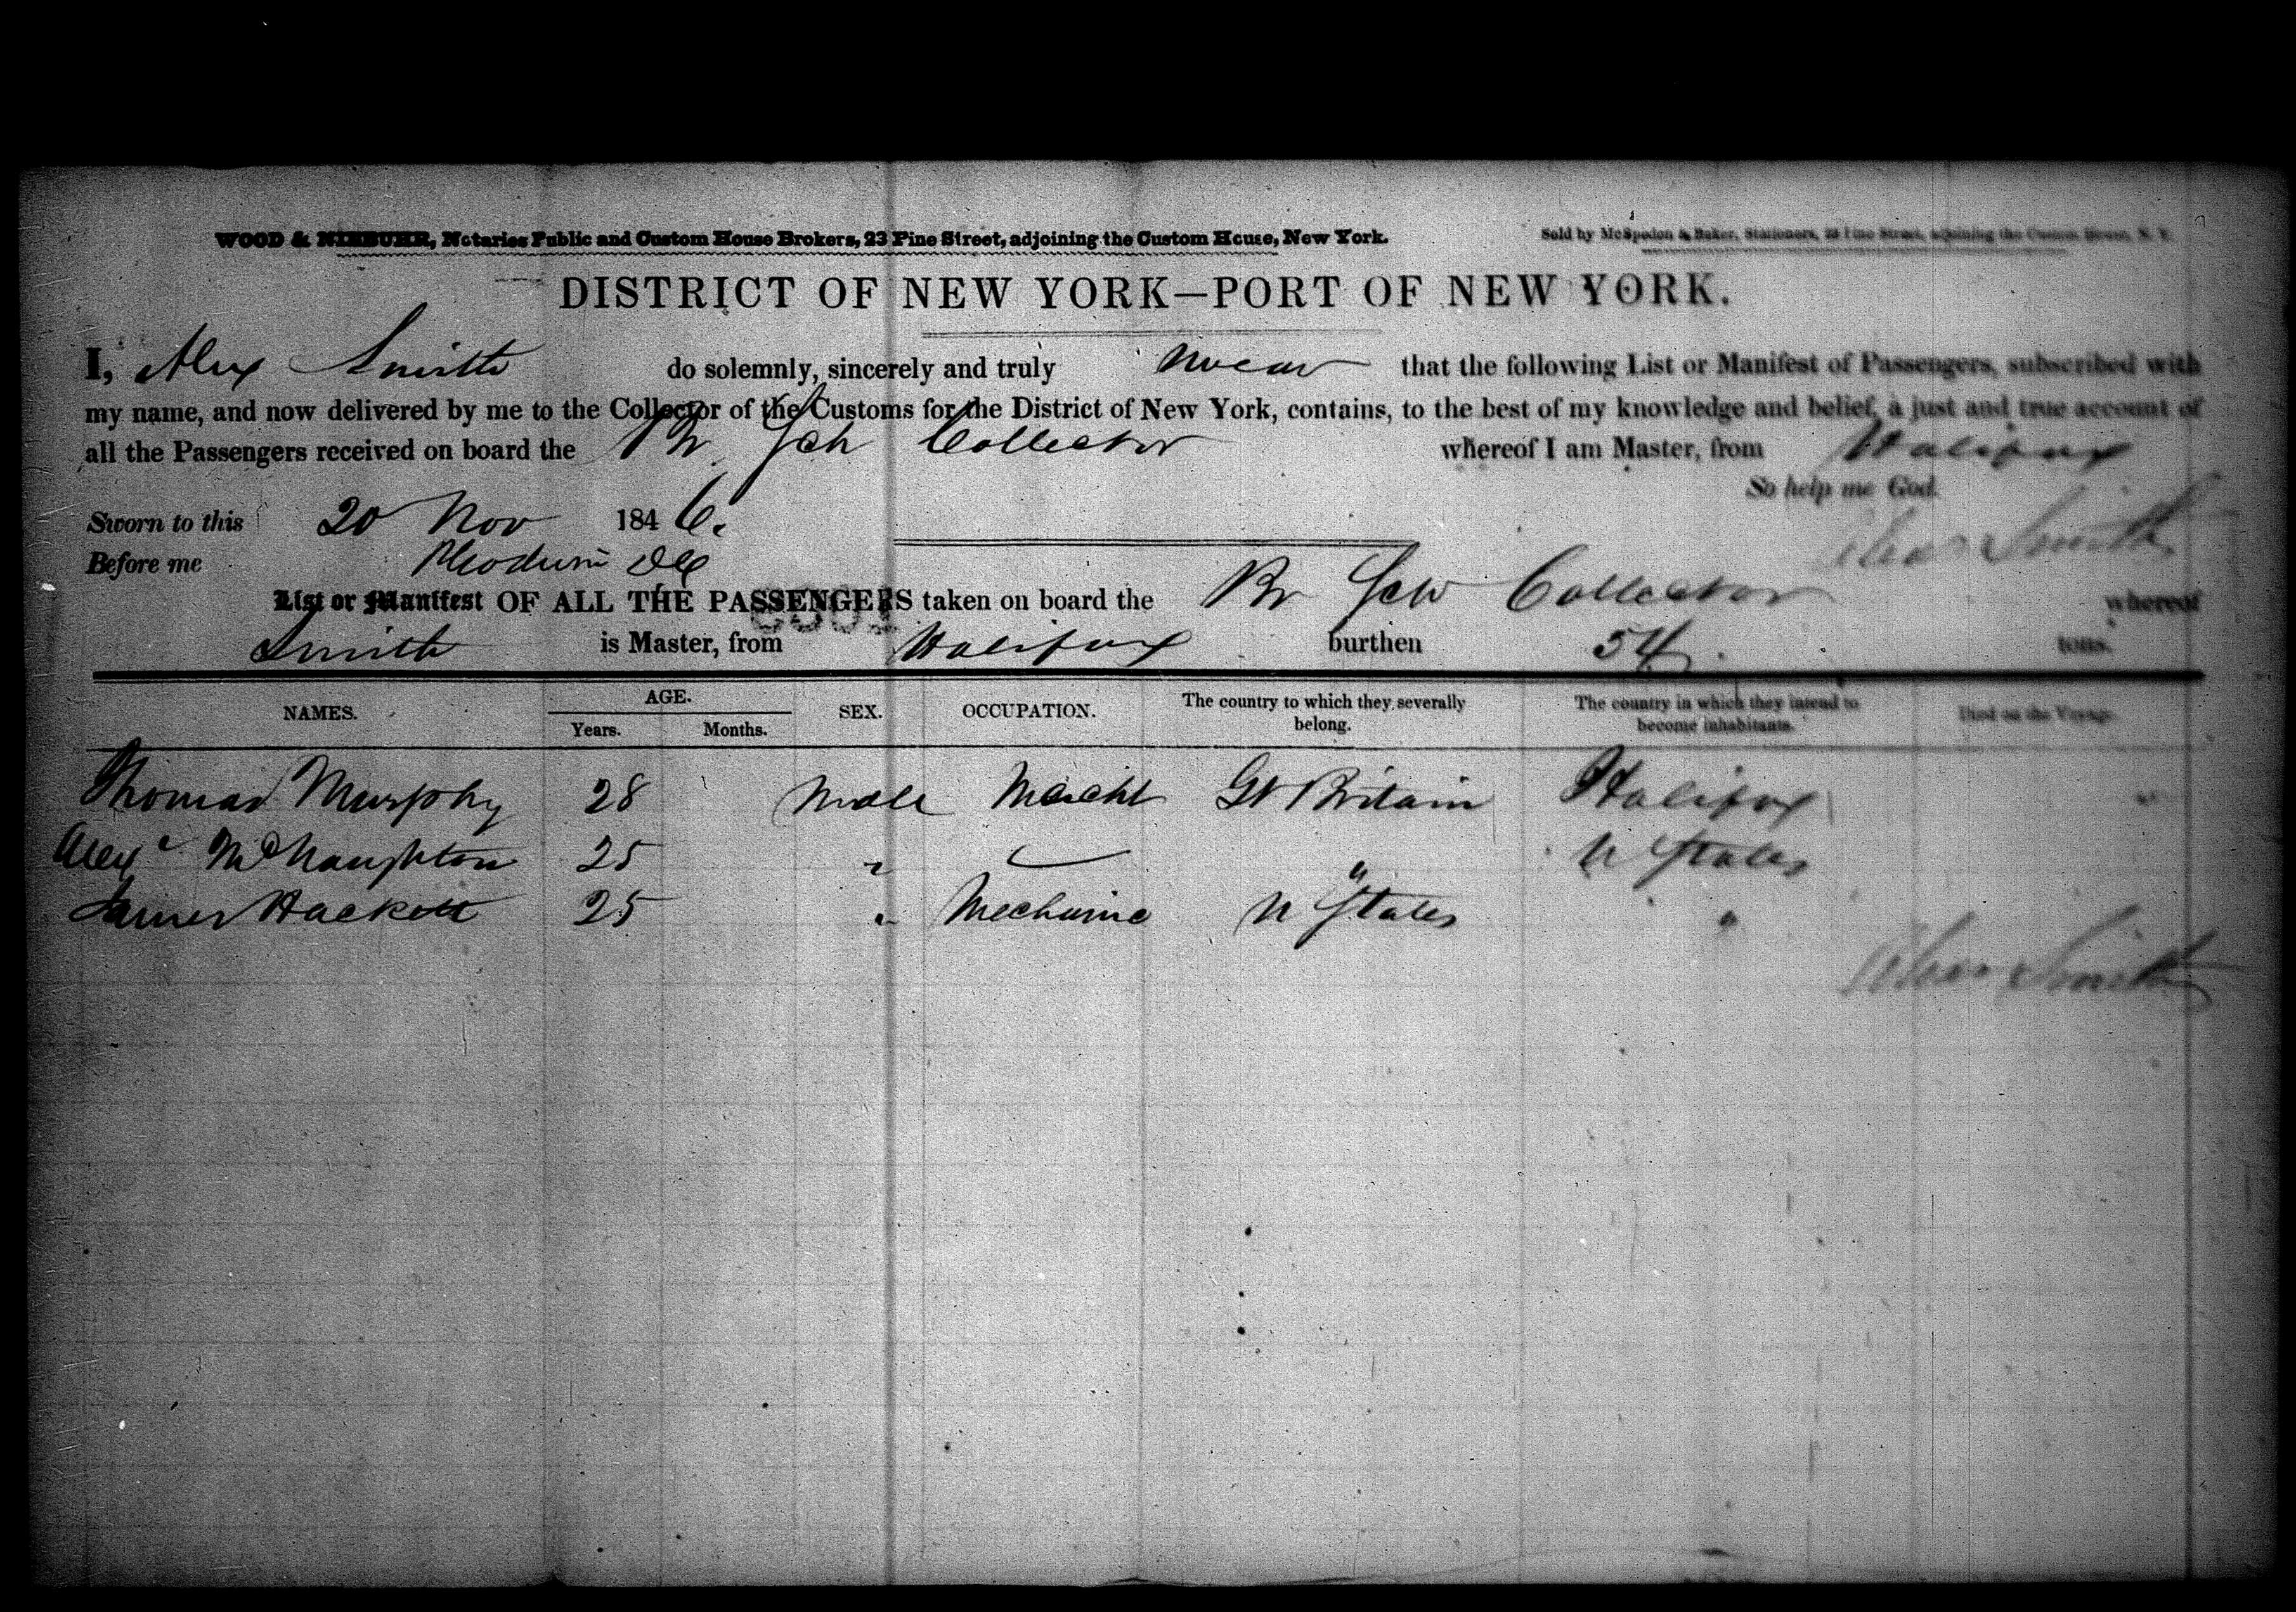 WOOD & NIEBUHR, Notaries Public and Custom House Brokers, 23 Pine Street, adjoining the Custom House, New York.
Sold by McSpedon & Baker, Stationers, 25 Pine Street, adjoining the Custom House, N. Y.
DISTRICT OF NEW YORK—PORT OF NEW YORK.
I, Alex Smith do solemnly, sincerely and truly swear that the following List or Manifest of Passengers, subscribed with
my name, and now delivered by me to the Collector of the Customs for the District of New York, contains, to the best of my knowledge and belief, a just and true account of
all the Passengers received on board the Br Sch Collector whereof I am Master, from Halifax
So help me God.
Sworn to this 20 Nov 1846. Alex Smith
Before me
List or Manifest OF ALL THE PASSENGERS taken on board the Br Sch Collector whereof
Smith is Master, from Halifax burthen 54 tons.
NAMES. AGE. SEX. OCCUPATION. The country to which they severally belong. The country in which they intend to become inhabitants. Died on the Voyage.
Years. Months.
Thomas Murphy 28 Male Mercht Gt Britain Halifax "
Alexr McNaughton 25 " " U States
James Hackett 25 " Mechanic U States "
Alex Smith